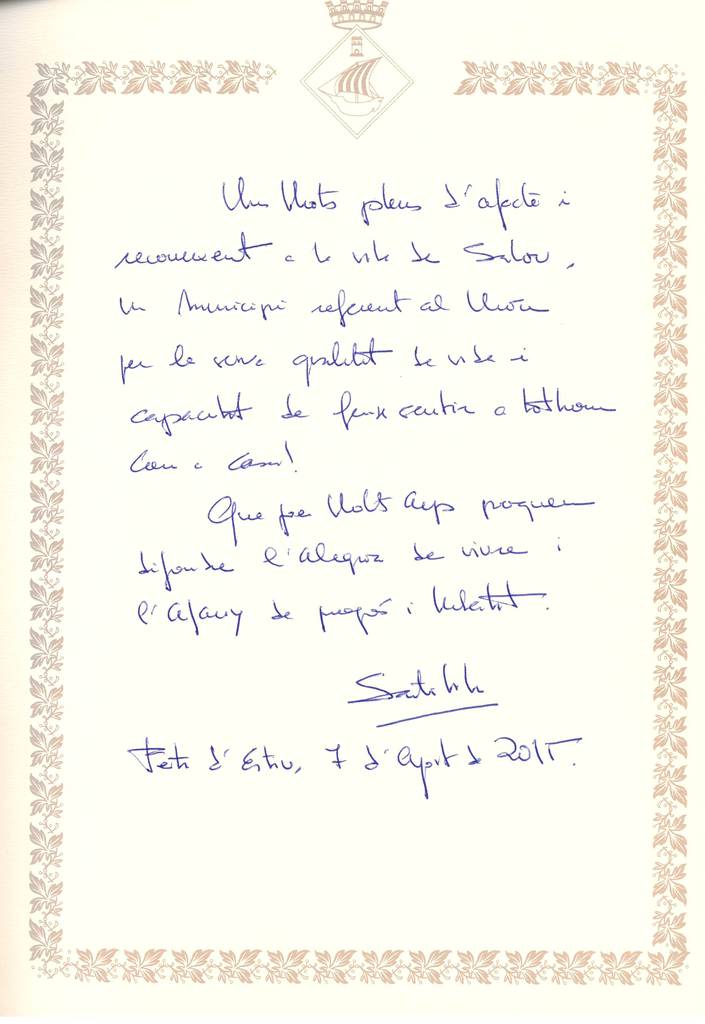 Uns mots plens d'afecte i
reconeixement a la vila de Salou,
un municipi referent al món
per la seva qualitat de vida i
capacitat de fer sentir a tothom
com a casa!
Que per molts anys puguem
difondre l'alegria de viure i
l'afany de progrés i
Festa d'Estiu, 7 d'Agost de 2015.